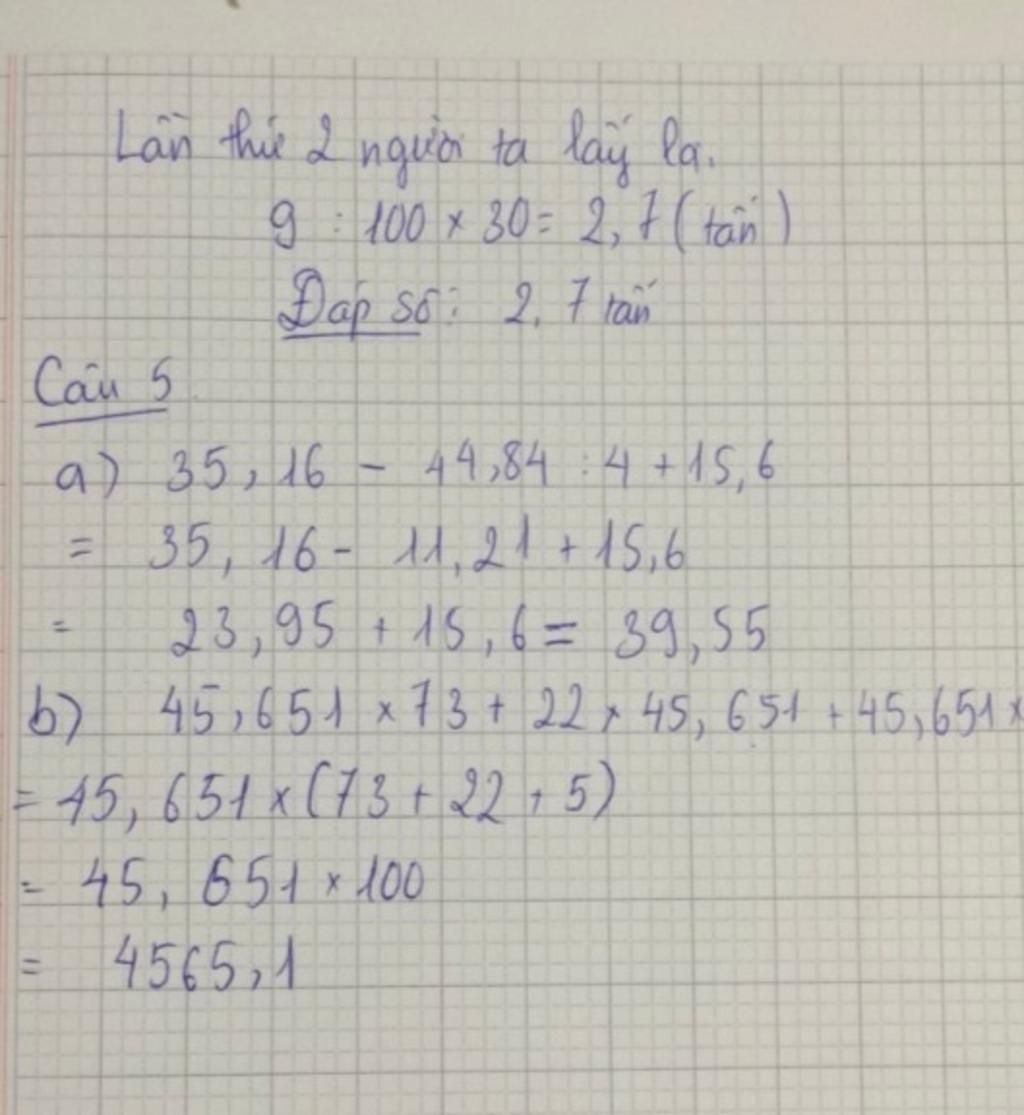 Lần thứ 2 người ta lấy ra.
9 : 100 × 30 = 2,7 (tấn)
Đáp số: 2,7 tấn
Câu 5
a) 35,16 - 44,84 : 4 + 15,6
= 35,16 - 11,21 + 15,6
= 23,95 + 15,6 = 39,55
b) 45,651 × 73 + 22 × 45,651 + 45,651 ×
= 45,651 × (73 + 22 + 5)
= 45,651 × 100
= 4565,1